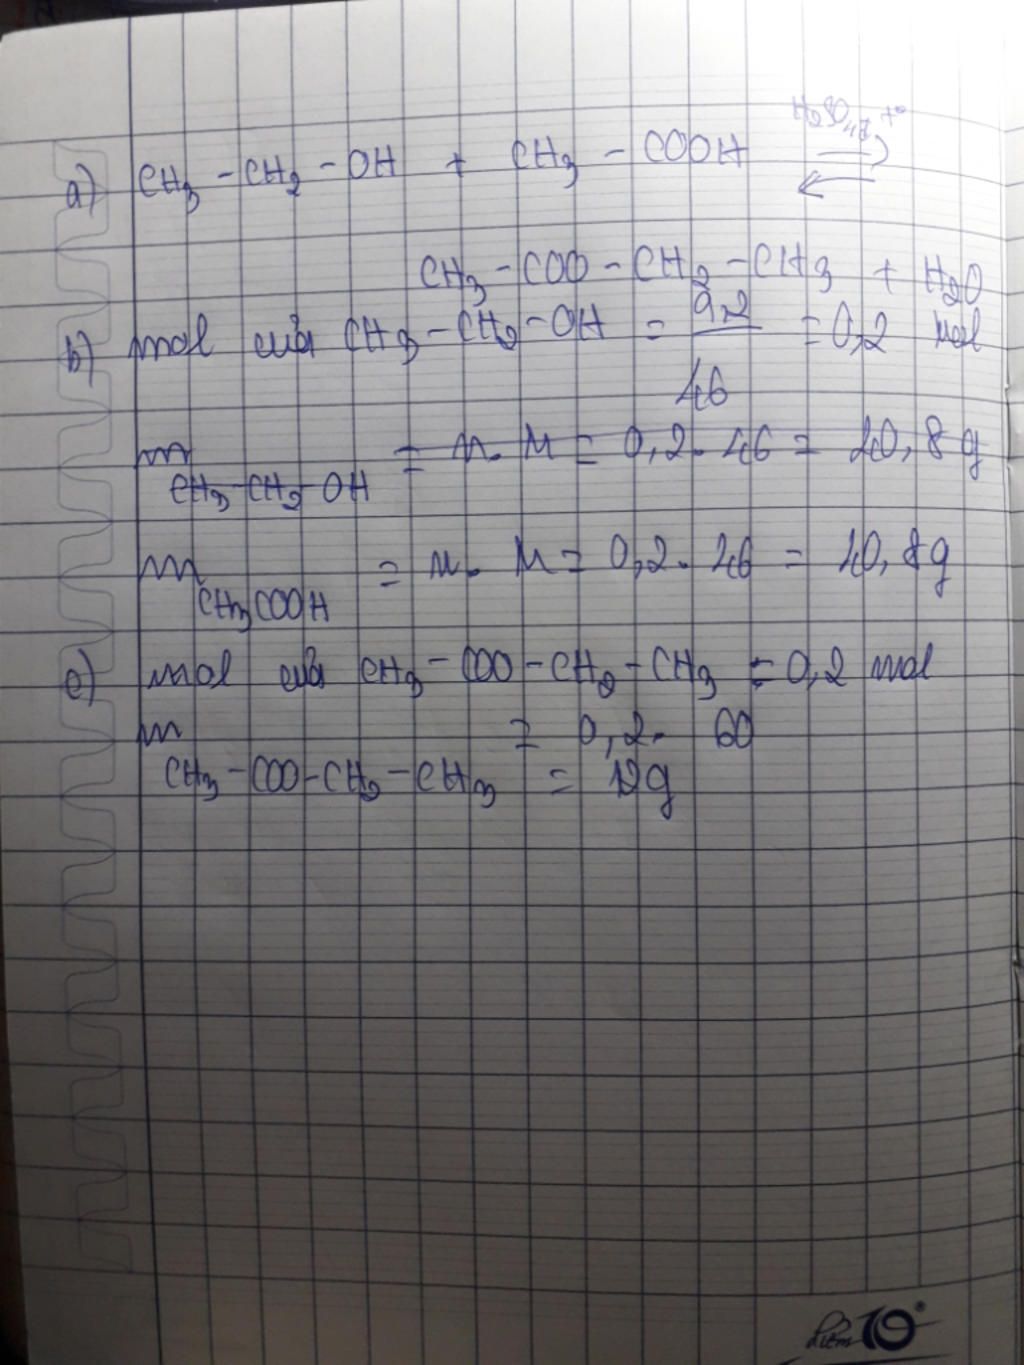 H2SO4đ, t°
a) CH3 - CH2 - OH + CH3 - COOH ⇌
CH3 - COO - CH2 - CH3 + H2O
b) mol của CH3 - CH2 - OH = 9,2 / 46 = 0,2 mol
m CH3-CH2-OH = n. M = 0,2. 46 = 40,8 g
m CH3COOH = n. M = 0,2. 46 = 40,8g
c) mol của CH3 - COO - CH2 - CH3 = 0,2 mol
m CH3 - COO - CH2 - CH3 = 0,2. 60
= 12g
Điểm 10